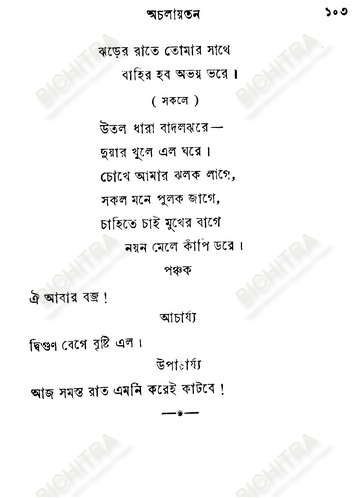 অচলায়তন ১০৩
ঝড়ের রাতে তোমার সাথে
বাহির হব অভয় ভরে।
( সকলে )
উতল ধারা বাদলঝরে—
দুয়ার খুলে এল ঘরে।
চোখে আমার ঝলক লাগে,
সকল মনে পুলক জাগে,
চাহিতে চাই মুখের বাগে
নয়ন মেলে কাঁপি ডরে।
পঞ্চক
ঐ আবার বজ্র!
আচার্য্য
দ্বিগুণ বেগে বৃষ্টি এল।
উপাচার্য্য
আজ সমস্ত রাত এমনি করেই কাটবে!
BICHITRA
BICHITRA
BICHITRA
BICHITRA
BICHITRA
BICHITRA